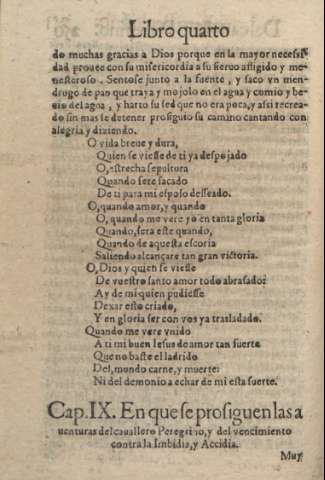 Libro quarto
do muchas gracias a Dios porque en la mayor necessi
dad prouee con su misericordia a su sieruo afligido y me
nesteroso. Sentose junto a la fuente, y saco vn men-
drugo de pan que traya y mojolo en el agua y comio y be
uio del agua, y harto su sed que no era poca, y assi recrea-
do sin mas se detener prosiguio su camino cantando con
alegria y diziendo.
O vida breue y dura,
Quien se viesse de ti ya despojado
O, estrecha sepultura
Quando sere sacado
De ti para mi esposo desseado.
O, quando amor, y quando
O, quando me vere yo en tanta gloria
Quando, sera este quando,
Quando de aquesta escoria
Saliendo alcançare tan gran victoria.
O, Dios y quien se viesse
De vuestro santo amor todo abrasado:
Ay de mi quien pudiesse
Dexar esto criado,
Y en gloria ser con vos ya trasladado.
Quando me vere vnido
A ti mi buen Iesus de amor tan fuerte
Que no baste el ladrido
Del, mundo carne, y muerte:
Ni del demonio a echar de mi esta suerte.
Cap. IX. En que se prosiguen las a
uenturas del cauallero Peregrino, y del vencimiento
contra la Imbidia, y Accidia.
Muy